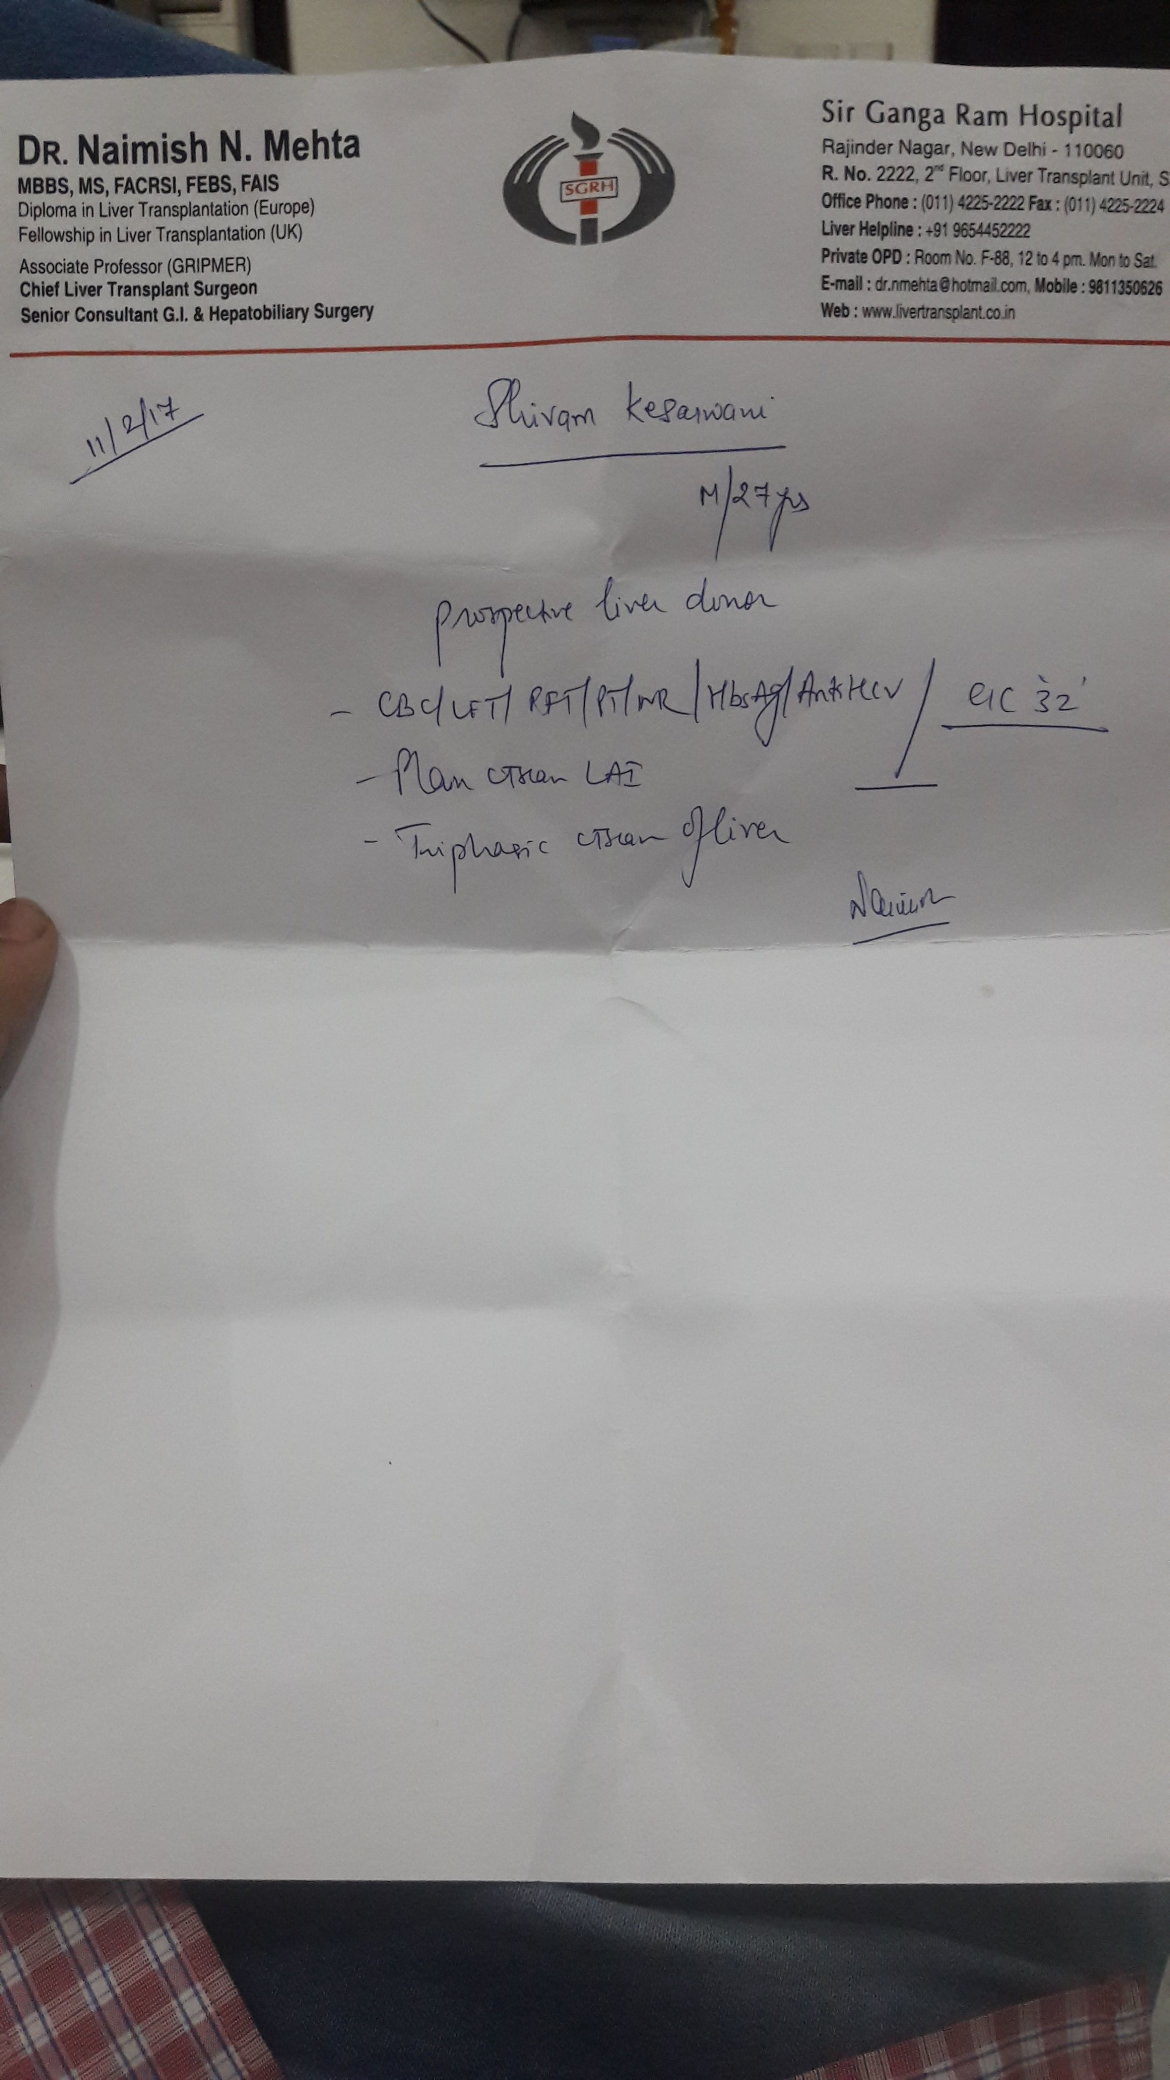 DR. Naimish N. Mehta
MBBS, MS, FACRSI, FEBS, FAIS
Diploma in Liver Transplantation (Europe)
Fellowship in Liver Transplantation (UK)
Associate Professor (GRIPMER)
Chief Liver Transplant Surgeon
Senior Consultant G.I. & Hepatobiliary Surgery
SGRH
Sir Ganga Ram Hospital
Rajinder Nagar, New Delhi - 110060
R. No. 2222, 2nd Floor, Liver Transplant Unit, S
Office Phone : (011) 4225-2222 Fax : (011) 4225-2224
Liver Helpline : +91 9654452222
Private OPD : Room No. F-88, 12 to 4 pm. Mon to Sat.
E-mail : dr.nmehta@hotmail.com, Mobile : 9811350626
Web : www.livertransplant.co.in
11/2/17
Shivam Kesarwani
M/27yrs
prospective liver donor
- CBC/LFT/RFT/PT/INR/HbsAg/AntiHCV/
- Plain CTscan LAI
- Triphasic CTscan of liver
Naimish